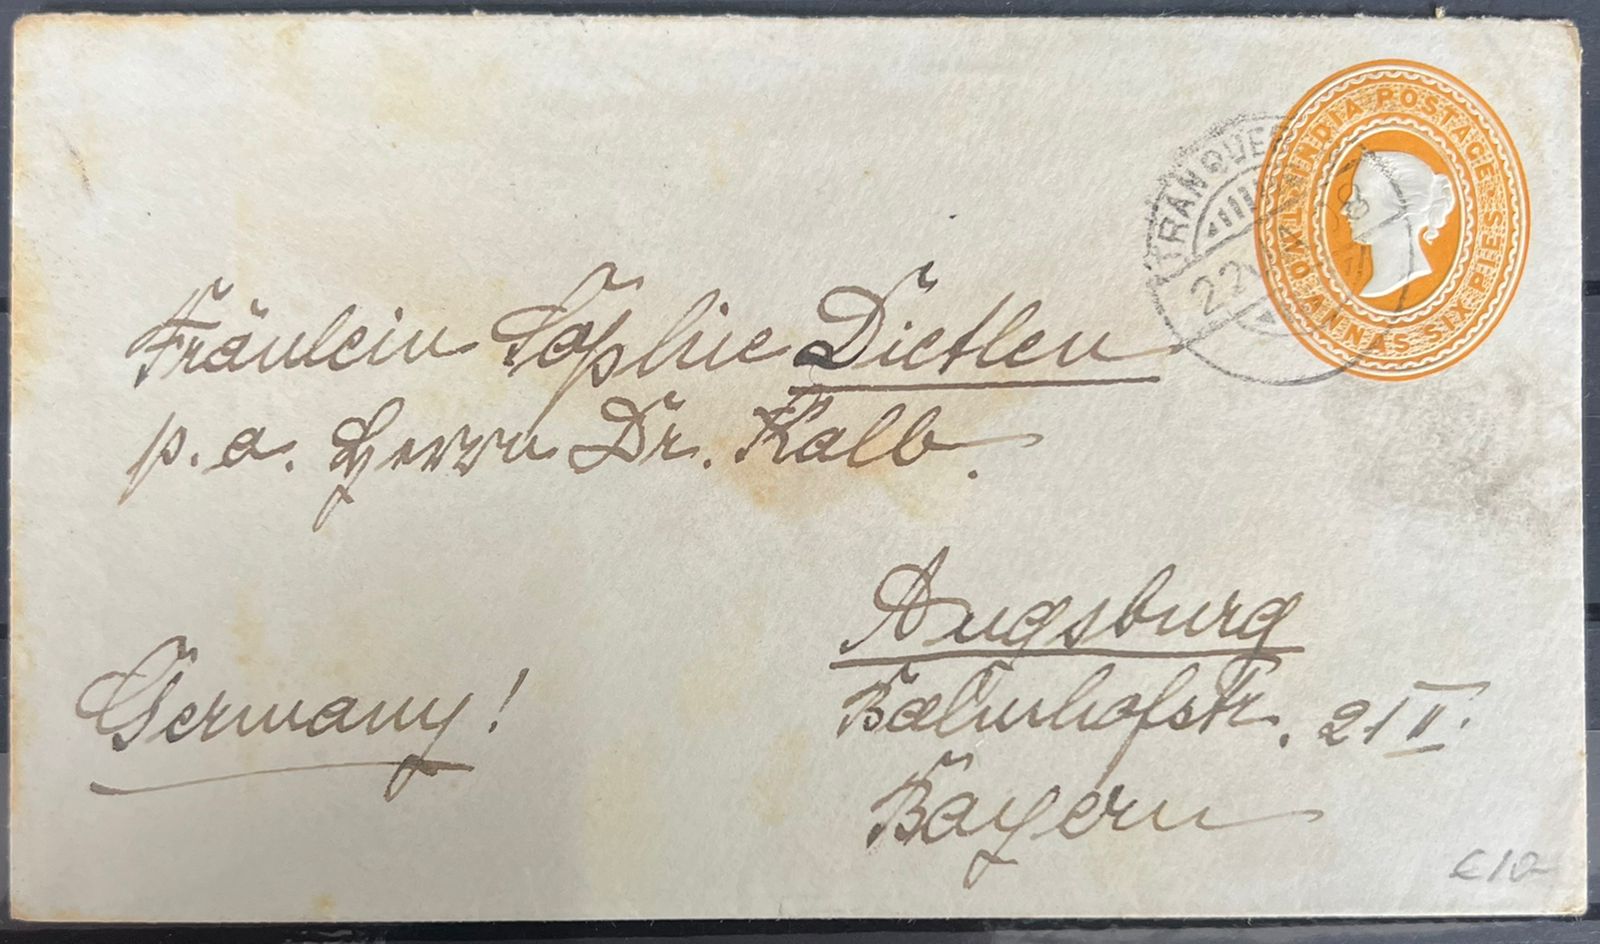 INDIA POSTAGE
TWO ANNAS SIX PIES
TRANQUE
22
Fräulein Sophie Dietlen
p. a. Herrn Dr. Kalb.
Augsburg
Bahnhofstr. 21 II.
Bayern
Germany!